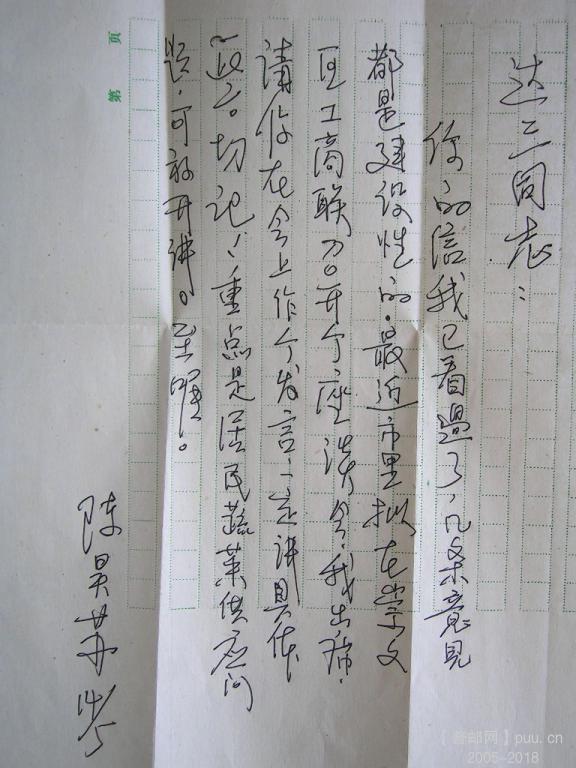 达三同志：
你的信我已看过了，几条意见
都是建设性的。最近市里拟在崇文
区工商联召开个座谈会，我出席，
请你在会上作个发言，一定讲具体
一些。切记！重点是居民蔬菜供应问
题，可放开讲。至嘱。
陈昊苏
第 页
【普邮网】puu.cn
2005-2018